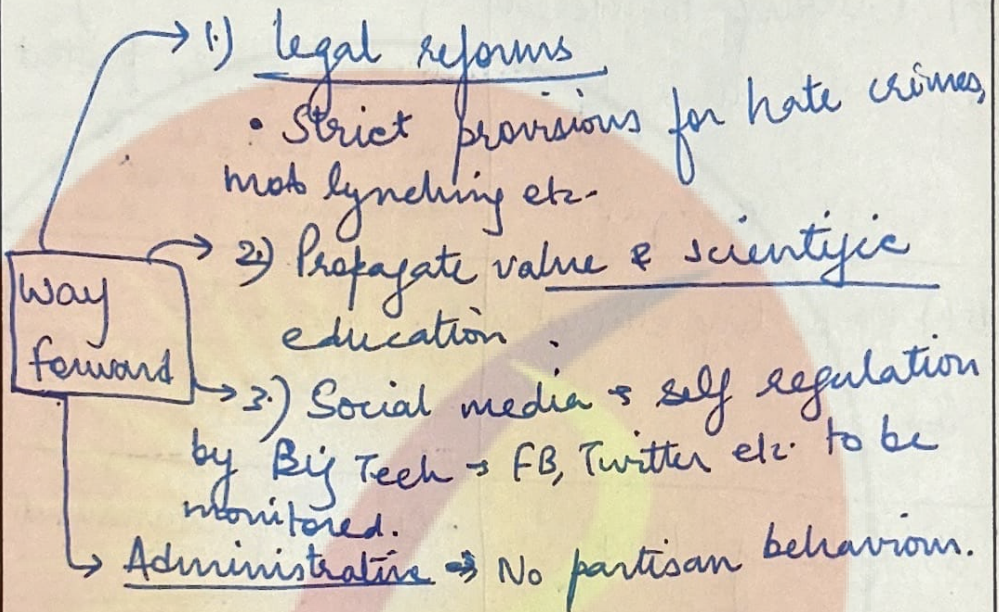 1.) legal reforms
• Strict provisions for hate crimes,
mob lynching etc.
Way
forward
2.) Propagate value & scientific
education.
3.) Social media → self regulation
by Big Tech → FB, Twitter etc. to be
monitored.
Administrative → No partisan behaviour.